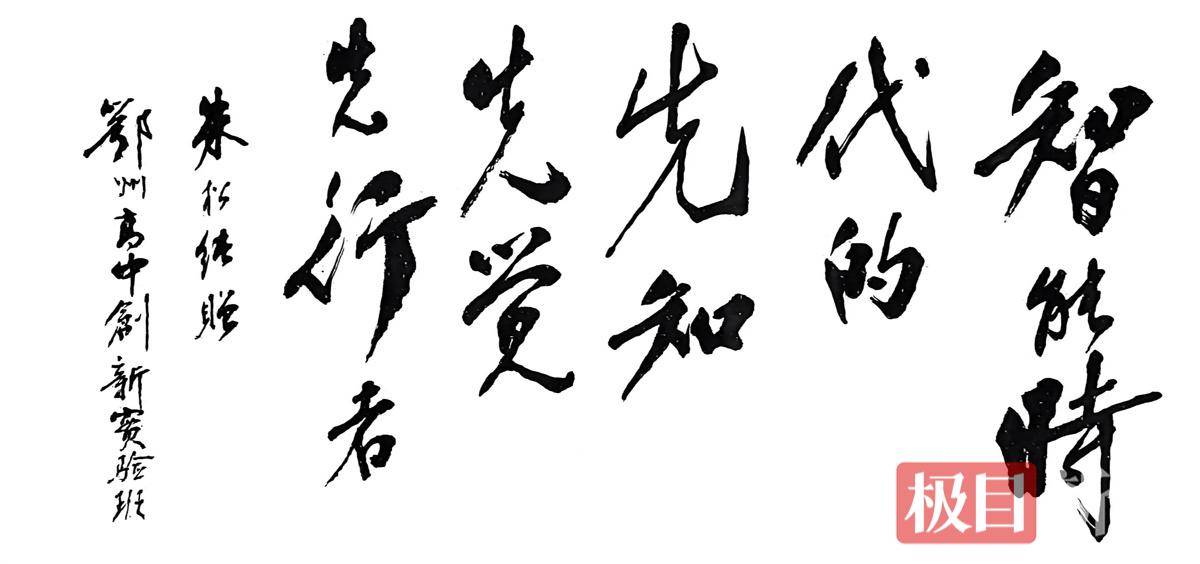 智能時
代的
先知
先觉
先行者
朱松纯贈
鄂州高中創新實驗班
极目